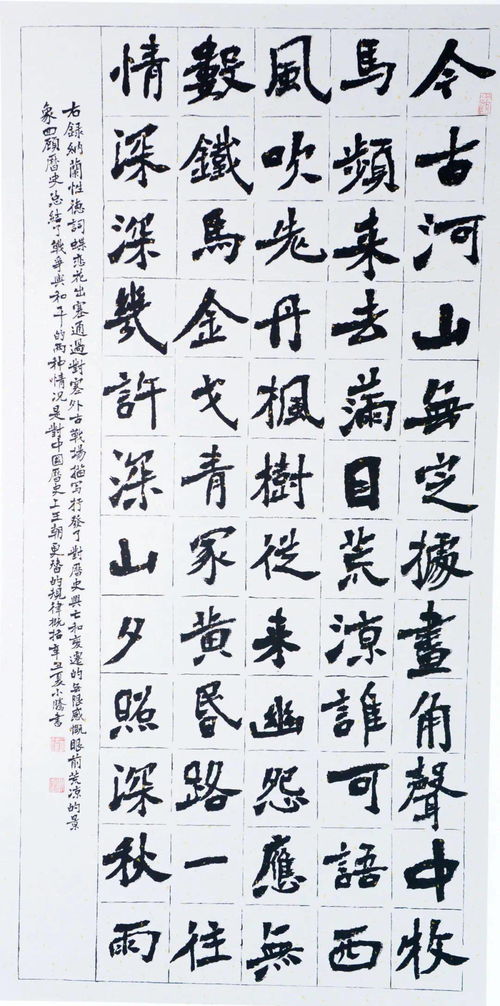 今古河山無定據畫角聲中牧
馬頻来去滿目荒涼誰可語西
風吹老丹楓樹從来幽怨應無
數鐵馬金戈青冢黄昏路一往
情深深幾許深山夕照深秋雨
右録納蘭性德詞蝶恋花出塞通過對塞外古戰場描写抒發了對曆史興亡和变遷的無限感慨眼前荒凉的景
象回顾曆史总结了戰争與和平的两种情况是對中国曆史上王朝更替的規律概括辛丑夏小腾書